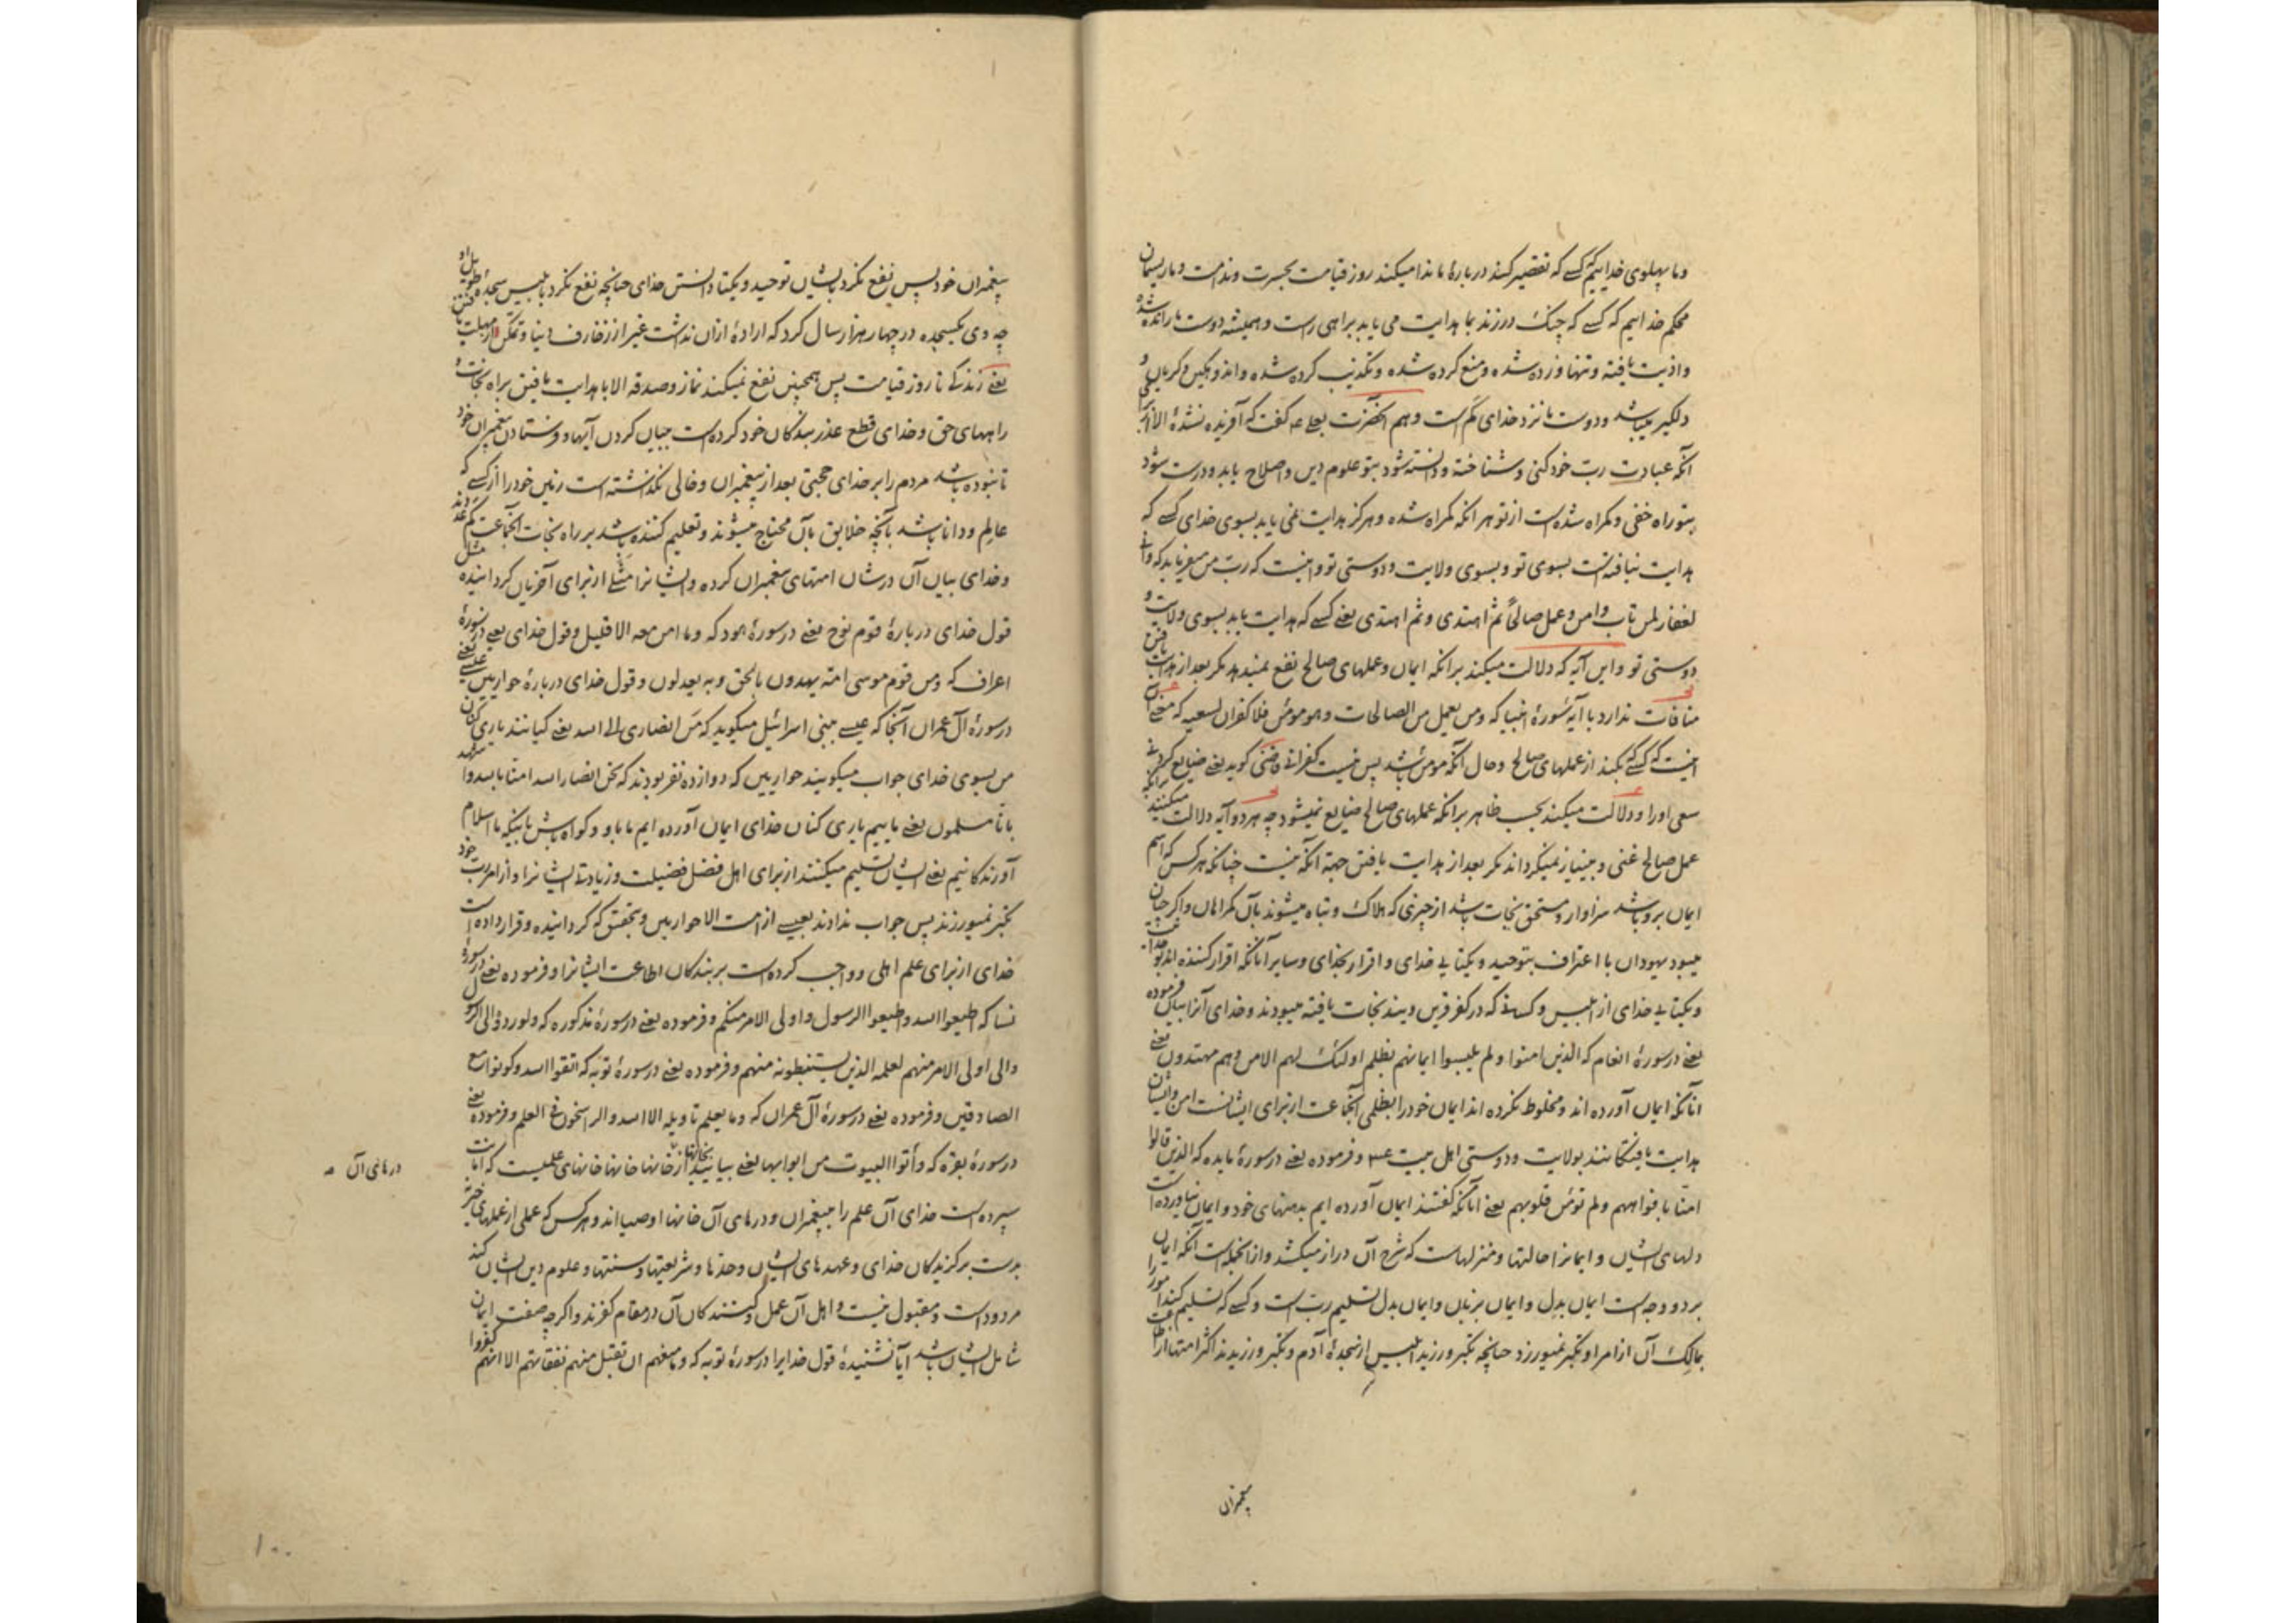 وما پهلوی خداییم که کسے که تقصیر کند دربارهٔ ما ندا میکند روز قیامت بحسرت وندامت وما ریسمان
محکم خداییم که کسے که چنگ درزند بما هدایت می یابد براهی راست وهمیشه دوست ما رانده شده
واذیت یافته وتنها ورده شده ومنع کرده شده وتکذیب کرده شده واندوهگین وگریان و
دلگیر میباشد ودوست ما نزد خدای کم است وهم آنحضرت بعلے عه گفت که آفریده نشدهٔ الا از برای
آنکه عبادت رب خود کنی وشناخته ودانسته شود بتو علوم دین واصلاح یابد ودرست شود
بتو راه خفی وگمراه شده است از تو هر آنکه گمراه شده وهرگز هدایت نمی یابد بسوی خدای کسے که
هدایت نیافته است بسوی تو وبسوی ولایت ودوستی تو واینست که رب من میفرماید که وانی
لغفار لمن تاب وامن وعمل صالحاً ثم اهتدی وثم اهتدی یعنے کسے که هدایت یابد بسوی ولایت و
دوستی تو واین آیه که دلالت میکند برآنکه ایمان وعملهای صالح نفع نمیدهد مگر بعد از هدایت یافتن
منافات ندارد با آیهٔ سورهٔ انبیا که ومن یعمل من الصالحات وهو مومن فلا کفران لسعیه که معنے اش
اینست که کسے که بکند از عملهای صالح وحال آنکه مومن باشد پس نیست کفرانے وضنی گوید یعنے ضایع کردنے
سعی او را ودلالت میکند بحسب ظاهر برآنکه عملهای صالح ضایع نمیشود چه هر دو آیه دلالت میکنند برآنکه
عمل صالح غنی وبینیاز نمیگرداند مگر بعد از هدایت یافتن جهة آنکه نیست چنانکه هرکس که اسم
ایمان برو باشد سزاوار ومستحق نجات باشد از چیزی که هلاک وتباه میشوند بآن گمراهان واگر چنان
میبود یهودان با اعتراف بتوحید ویکتایے خدای واقرار بخدای وسایر آنانکه اقرار کننده اند بوحدانیت
ویکتایے خدای از ابلیس وکسانے که در کفر قرین ویند نجات یافته میبودند وخدای آنرا بیان فرموده
یعنے در سورهٔ انعام که الذین امنوا ولم یلبسوا ایمانهم بظلم اولئک لهم الامن وهم مهتدون یعنے
آنانکه ایمان آورده اند ومخلوط نکرده اند ایمان خود را بظلمی آنجماعت از برای ایشانست امن وایشان
هدایت یافتگانند بولایت ودوستی اهل بیت عم وفرموده یعنے در سورهٔ مایده که الذین قالوا
امنا بافواههم ولم تومن قلوبهم یعنے آنانکه گفتند ایمان آورده ایم بدهنهای خود وایمان نیاورده است
دلهای ایشان وایمانرا حالتها ومنزلهاست که شرح آن دراز میکشد واز آنجمله است آنکه ایمان
بر دو وجه است ایمان بدل وایمان بزبان وایمان بدل تسلیم رب است وکسے که تسلیم کند امور را
بمالک آن از امر او تکبر نمیورزد چنانچه تکبر ورزید ابلیس از سجدهٔ آدم وتکبر ورزیدند اکثر امتها از اطاعت
پیغمبران
پیغمبران خود پس نفع نکرد بایشان توحید ویکتا دانستن خدای چنانچه نفع نکرد بابلیس سجدهٔ طویل او
چه وی یک سجده در چهار هزار سال کرد که ارادهٔ از آن نداشت غیر از زخارف دنیا وتمکن از مهلت یافتن
یعنے زندگے تا روز قیامت پس همچنین نفع نمیکند نماز وصدقه الا با هدایت یافتن براه نجات و
راههای حق وخدای قطع عذر بندگان خود کرده است ببیان کردن آیها وفرستادن پیغمبران خود
تا نبوده باشد مردم را بر خدای حجتی بعد از پیغمبران وخالی نگذاشته است زمین خود را از کسے که
عالم ودانا باشد بآنچه خلایق بآن محتاج میشوند وتعلیم کننده باشد بر راه نجات آنجماعت کم عددند
وخدای بیان آن در شان امتهای پیغمبران کرده وایشانرا مثلے از برای آخریان گردانیده مثل
قول خدای دربارهٔ قوم نوح یعنے در سورهٔ هود که وما امن معه الا قلیل وقول خدای یعنے در سورهٔ
اعراف که ومن قوم موسی امة یهدون بالحق وبه یعدلون وقول خدای دربارهٔ حواریین عیسے یعنے
در سورهٔ آل عمران آنجا که عیسے ببنی اسرائیل میگوید که من انصاری الی الله یعنے کیانند یاری کنان
من بسوی خدای جواب میگویند حواریین که دوازده نفر بودند که نحن انصار الله امنا بالله واشهد
بانا مسلمون یعنے ماییم یاری کنان خدای ایمان آورده ایم ما باو وگواه باش باینکه ما اسلام
آورندگانیم یعنے ایشان تسلیم میکنند از برای اهل فضل فضیلت وزیادتے ایشانرا واز امر رب خود
تکبر نمیورزند پس جواب ندادند بعیسے از امت الا حواریین وبتحقیق که گردانیده وقرار داده است
خدای از برای علم اهلی وواجب کرده است بر بندگان اطاعت ایشانرا وفرموده یعنے در سورهٔ
نسا که اطیعوا الله واطیعوا الرسول واولی الامر منکم وفرموده یعنے در سورهٔ مذکوره که ولو ردوه الی الرسول
والی اولی الامر منهم لعلمه الذین یستنبطونه منهم وفرموده یعنے در سورهٔ توبه که اتقوا الله وکونوا مع
الصادقین وفرموده یعنے در سورهٔ آل عمران که وما یعلم تاویله الا الله والراسخون فی العلم وفرموده یعنے
در سورهٔ بقره که وأتوا البیوت من ابوابها یعنے بیایید بخانها از خانها خانها خانهای علمیست که امانت
در هائی آن
سپرده است خدای آن علم را بپیغمبران ودرهای آن خانها اوصیااند وهرکس که عملی از عملهای خیر
بدست برگزیدگان خدای وعهدهای ایشان وحدها وشریعتها وسنتها وعلوم دین ایشان کند
مردود است ومقبول نیست واهل آن عمل وکنندگان آن در مقام کفرند واگر چه صفت ایمان
شامل ایشان باشد آیا نشنیدهٔ قول خدایرا در سورهٔ توبه که وما منعهم ان تقبل منهم نفقاتهم الا انهم کفروا
۱۰۰